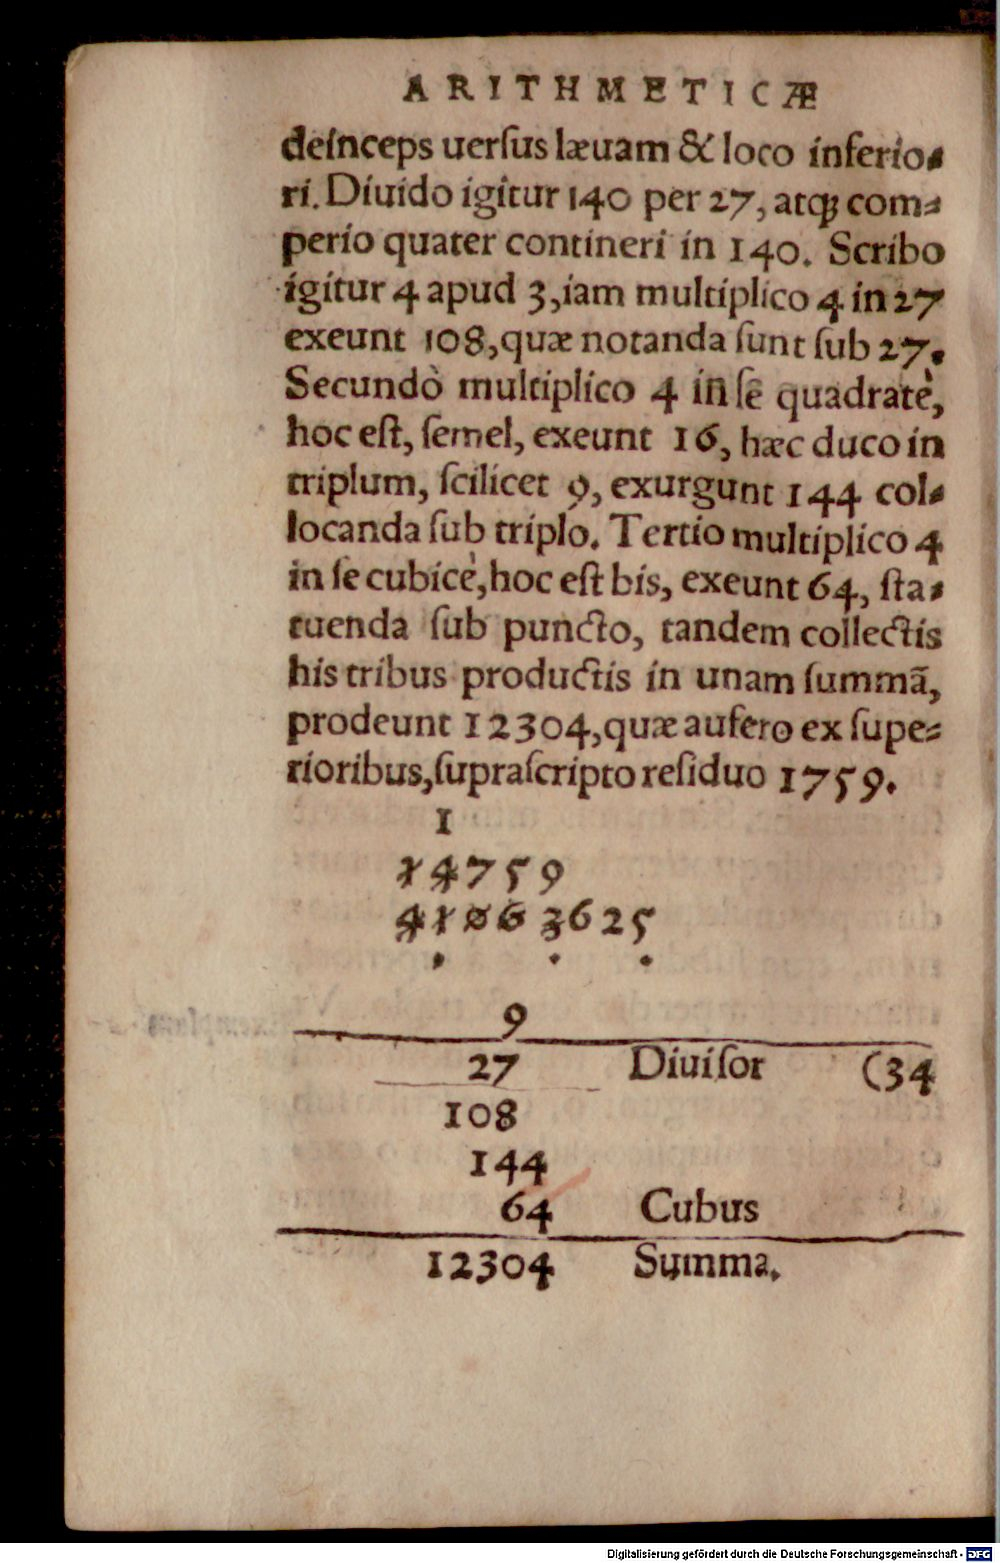 ARITHMETICÆ
deinceps uerſus læuam & loco inferio-
ri. Diuido igitur 140 per 27, atqꝫ com-
perio quater contineri in 140. Scribo
igitur 4 apud 3, iam multiplico 4 in 27
exeunt 108, quæ notanda ſunt ſub 27.
Secundò multiplico 4 in ſe quadratè,
hoc eſt, ſemel, exeunt 16, hæc duco in
triplum, ſcilicet 9, exurgunt 144 col-
locanda ſub triplo. Tertio multiplico 4
in ſe cubicè, hoc eſt bis, exeunt 64, ſta-
tuenda ſub puncto, tandem collectis
his tribus productis in unam ſummã,
prodeunt 12304, quæ aufero ex ſupe-
rioribus, ſupraſcripto reſiduo 1759.
1
14759
41063625
. . .
9
27 Diuiſor (34
108
144
64 Cubus
12304 Summa.
Digitalisierung gefördert durch die Deutsche Forschungsgemeinschaft - DFG